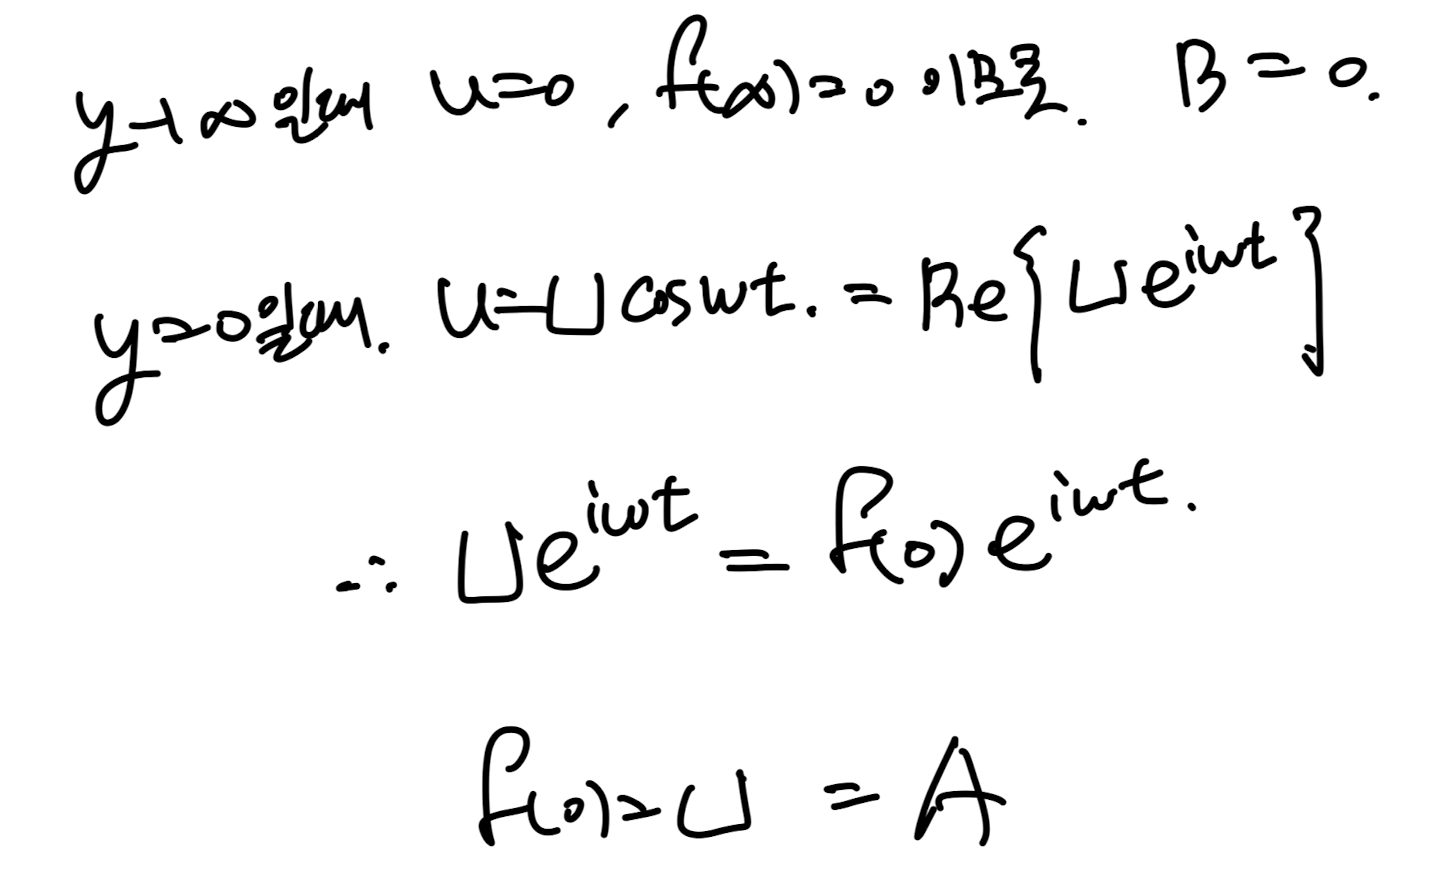 y→∞일때 u=0, f(∞)=0 이므로. B=0.
y=0일때. u=U cos wt. = Re{U e^{iwt}}
∴ U e^{iwt} = f(0) e^{iwt}.
f(0)=U = A